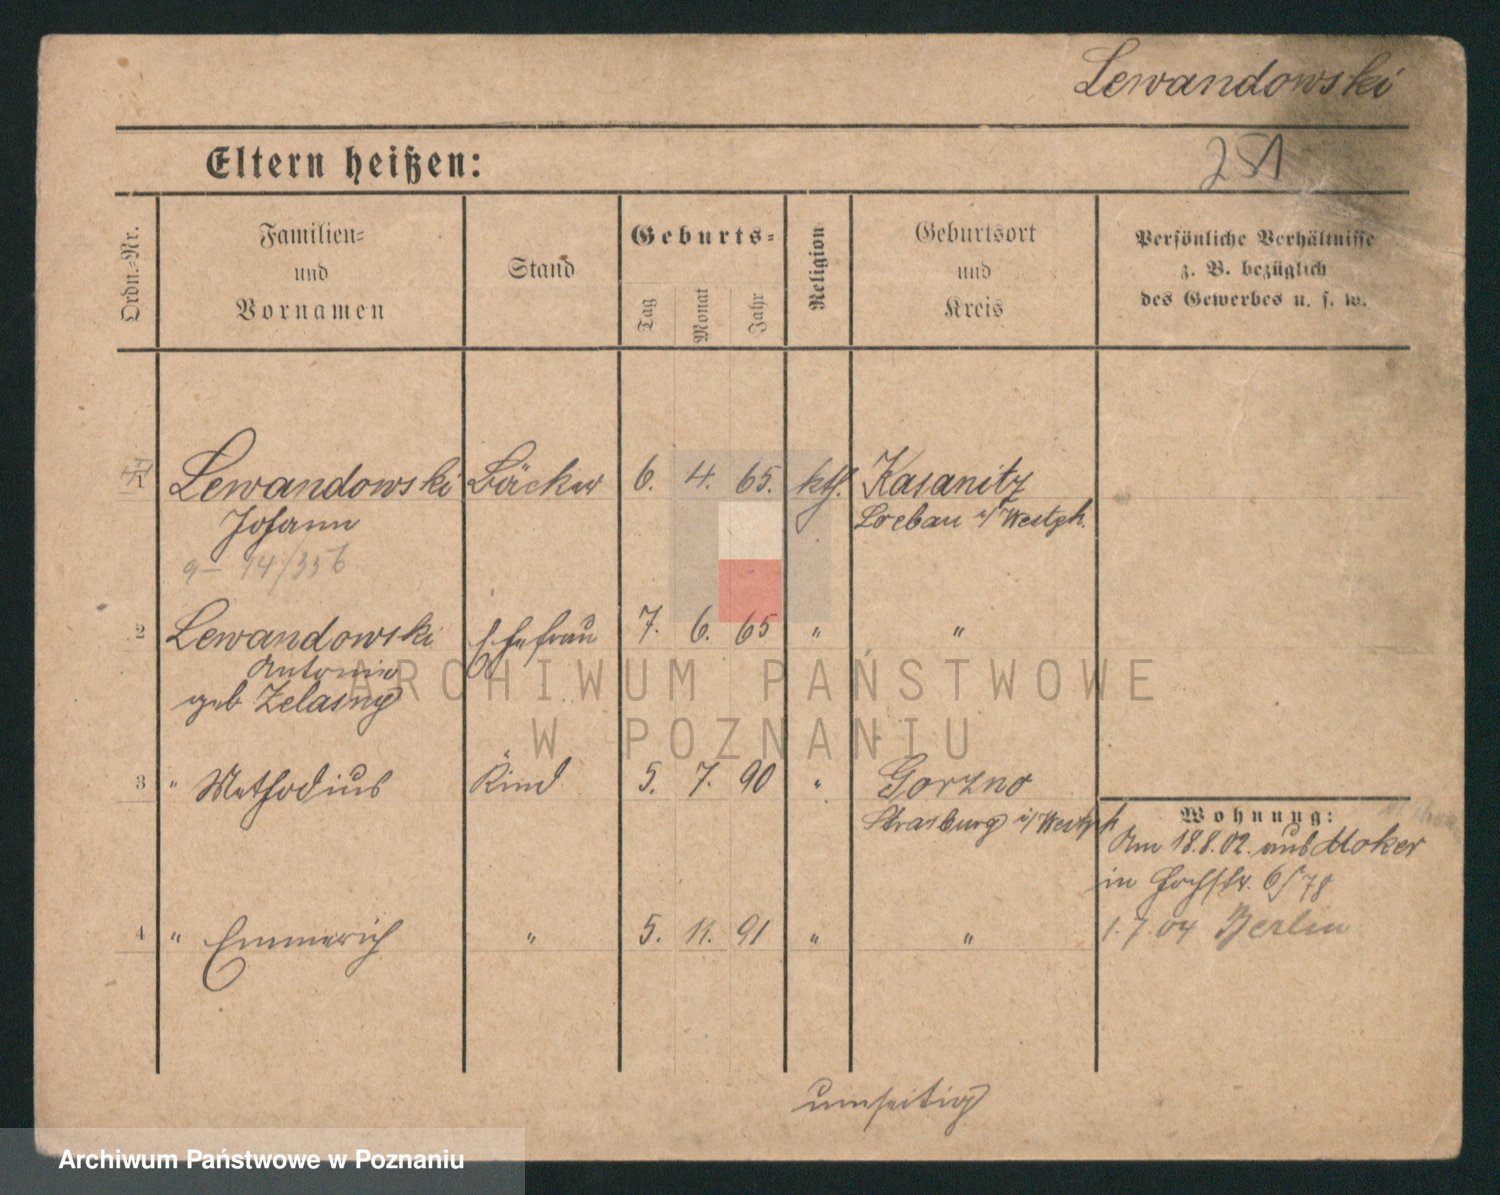 Lewandowski
Eltern heißen:
251
Ordn.-Nr.
Familien-
und
Vornamen
Stand
Geburts-
Tag
Monat
Jahr
Religion
Geburtsort
und
Kreis
Persönliche Verhältnisse
z. B. bezüglich
des Gewerbes u. s. w.
Lewandowski Bäcker 6. 4. 65. kth. Kasanitz
Johann Loebau i/Westph.
14/336
2 Lewandowski Ehefrau 7. 6. 65 " "
Antonie
geb Zelasny
3 " Methodius Kind 5. 7. 90 " Gorzno
Strasburg i/Westph
Wohnung:
Am 18.8.02. aus Moker
in 6/78
4 " Emmerich " 5. 11. 91 " "
1.7.04 Berlin
umseitig
ARCHIWUM PAŃSTWOWE
W POZNANIU
Archiwum Państwowe w Poznaniu